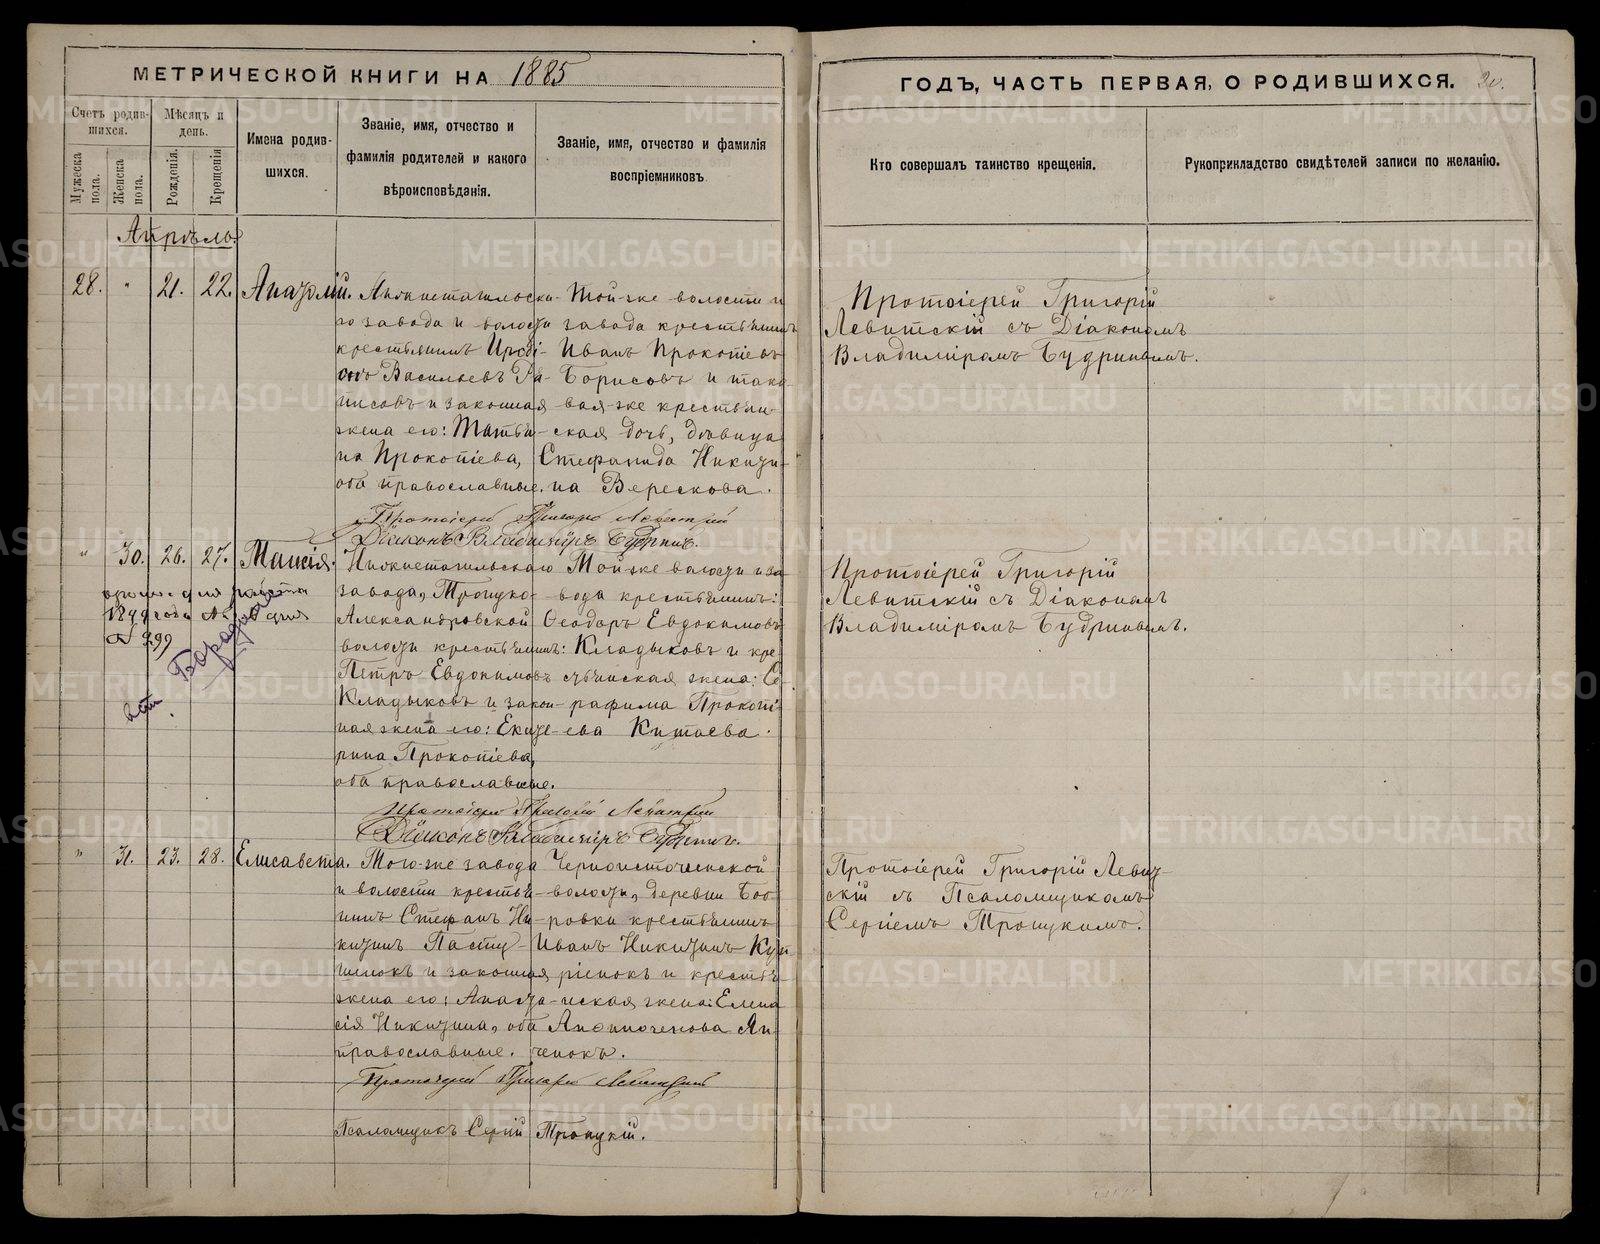 МЕТРИЧЕСКОЙ КНИГИ НА 1885
ГОДЪ, ЧАСТЬ ПЕРВАЯ, О РОДИВШИХСЯ. 20.
Счетъ родив-
шихся.
Мужеска
пола.
Женска
пола.
Мѣсяцъ и
день.
Рожденія.
Крещенія
Имена родив-
шихся.
Званіе, имя, отчество и
фамилія родителей и какого
вѣроисповѣданія.
Званіе, имя, отчество и фамилія
воспріемниковъ.
Кто совершалъ таинство крещенія.
Рукоприкладство свидѣтелей записи по желанію.
Апрѣль.
28. " 21. 22. Анатолій.
Нижнетагильска-
го завода и волости
крестьянинъ
Васильевъ
и законная
жена его: Матрё-
на Прокопіева,
оба православные.
Той-же волости и
завода крестьянинъ
Иванъ Прокопіевъ
Борисовъ и тако-
вая-же крестьян-
ская дочь, дѣвица
Стефанида Никити-
на Верескова.
Протоіерей Григорій
Левитскій съ Діакономъ
Владиміромъ Будринымъ.
Протоіерей Григорій Левитскій
Діаконъ Владиміръ Будринъ.
" 30. 26. 27. Таисія.
1899 года
№ 299
Нижнетагильскаго
завода, Троицко-
Александровской
волости крестьянинъ:
Петръ Евдокимовъ
Кладыковъ и закон-
ная жена его: Екате-
рина Прокопіева,
оба православные.
Той-же волости и за-
вода крестьянинъ:
Ѳеодоръ Евдокимовъ
Кладыковъ и кре-
стьянская жена: Се-
рафима Прокопі-
ева Китаева.
Протоіерей Григорій
Левитскій съ Діакономъ
Владиміромъ Будринымъ.
Протоіерей Григорій Левитскій
Діаконъ Владиміръ Будринъ.
" 31. 23. 28. Елисавета.
Того-же завода
и волости крестья-
нинъ Стефанъ Ни-
китинъ Пасту-
шенокъ и законная
жена его: Анаста-
сія Никитина, оба
православные.
Черноисточинской
волости, деревни Боб-
ровки крестьянинъ
Иванъ Никитинъ
и крестья-
нская жена: Елена
Протоіерей Григорій Левит-
скій съ Псаломщикомъ
Сергіемъ Троицкимъ.
Протоіерей Григорій Левитскій
Псаломщикъ Сергій Троицкій.
METRIKI.GASO-URAL.RU